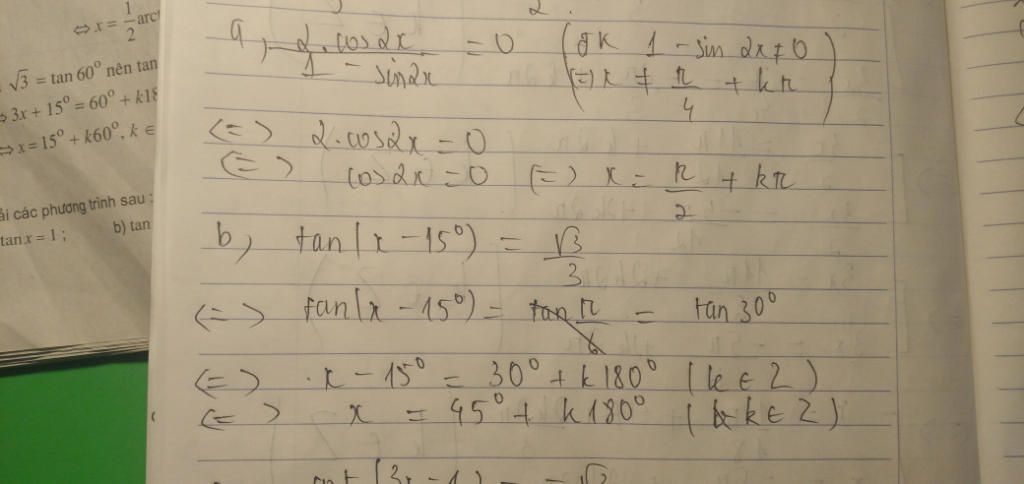 ⇔ x = 1/2 arc
√3 = tan 60° nên tan
3x + 15° = 60° + k18
⇔ x = 15° + k60°, k ∈
ải các phương trình sau :
tan x = 1 ; b) tan
a, 2.cos2x / 1 - sin2x = 0 (ĐK 1 - sin 2x ≠ 0
(=) x ≠ π/4 + kπ)
(=) 2.cos2x = 0
(=) cos2x = 0 (=) x = π/2 + kπ
b, tan(x - 15°) = √3/3
(=) tan(x - 15°) = tan π/6 = tan 30°
(=) x - 15° = 30° + k180° (k ∈ Z)
(=) x = 45° + k180° (k ∈ Z)
(3x - 1) = - √3